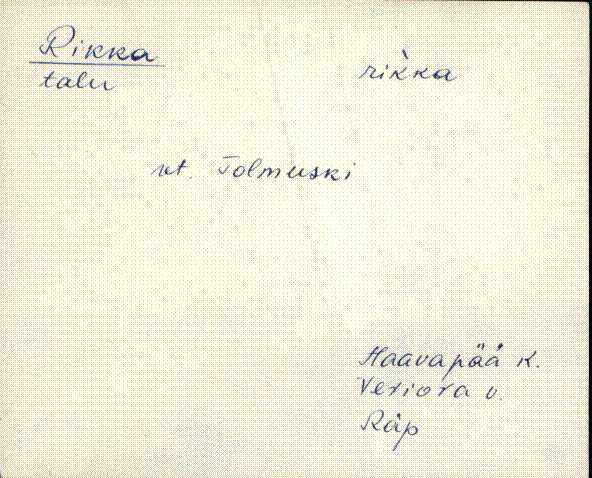 Rikka
talu
rik̀ka
vt. Tolmuski
Haavapää k.
Veriora v.
Räp